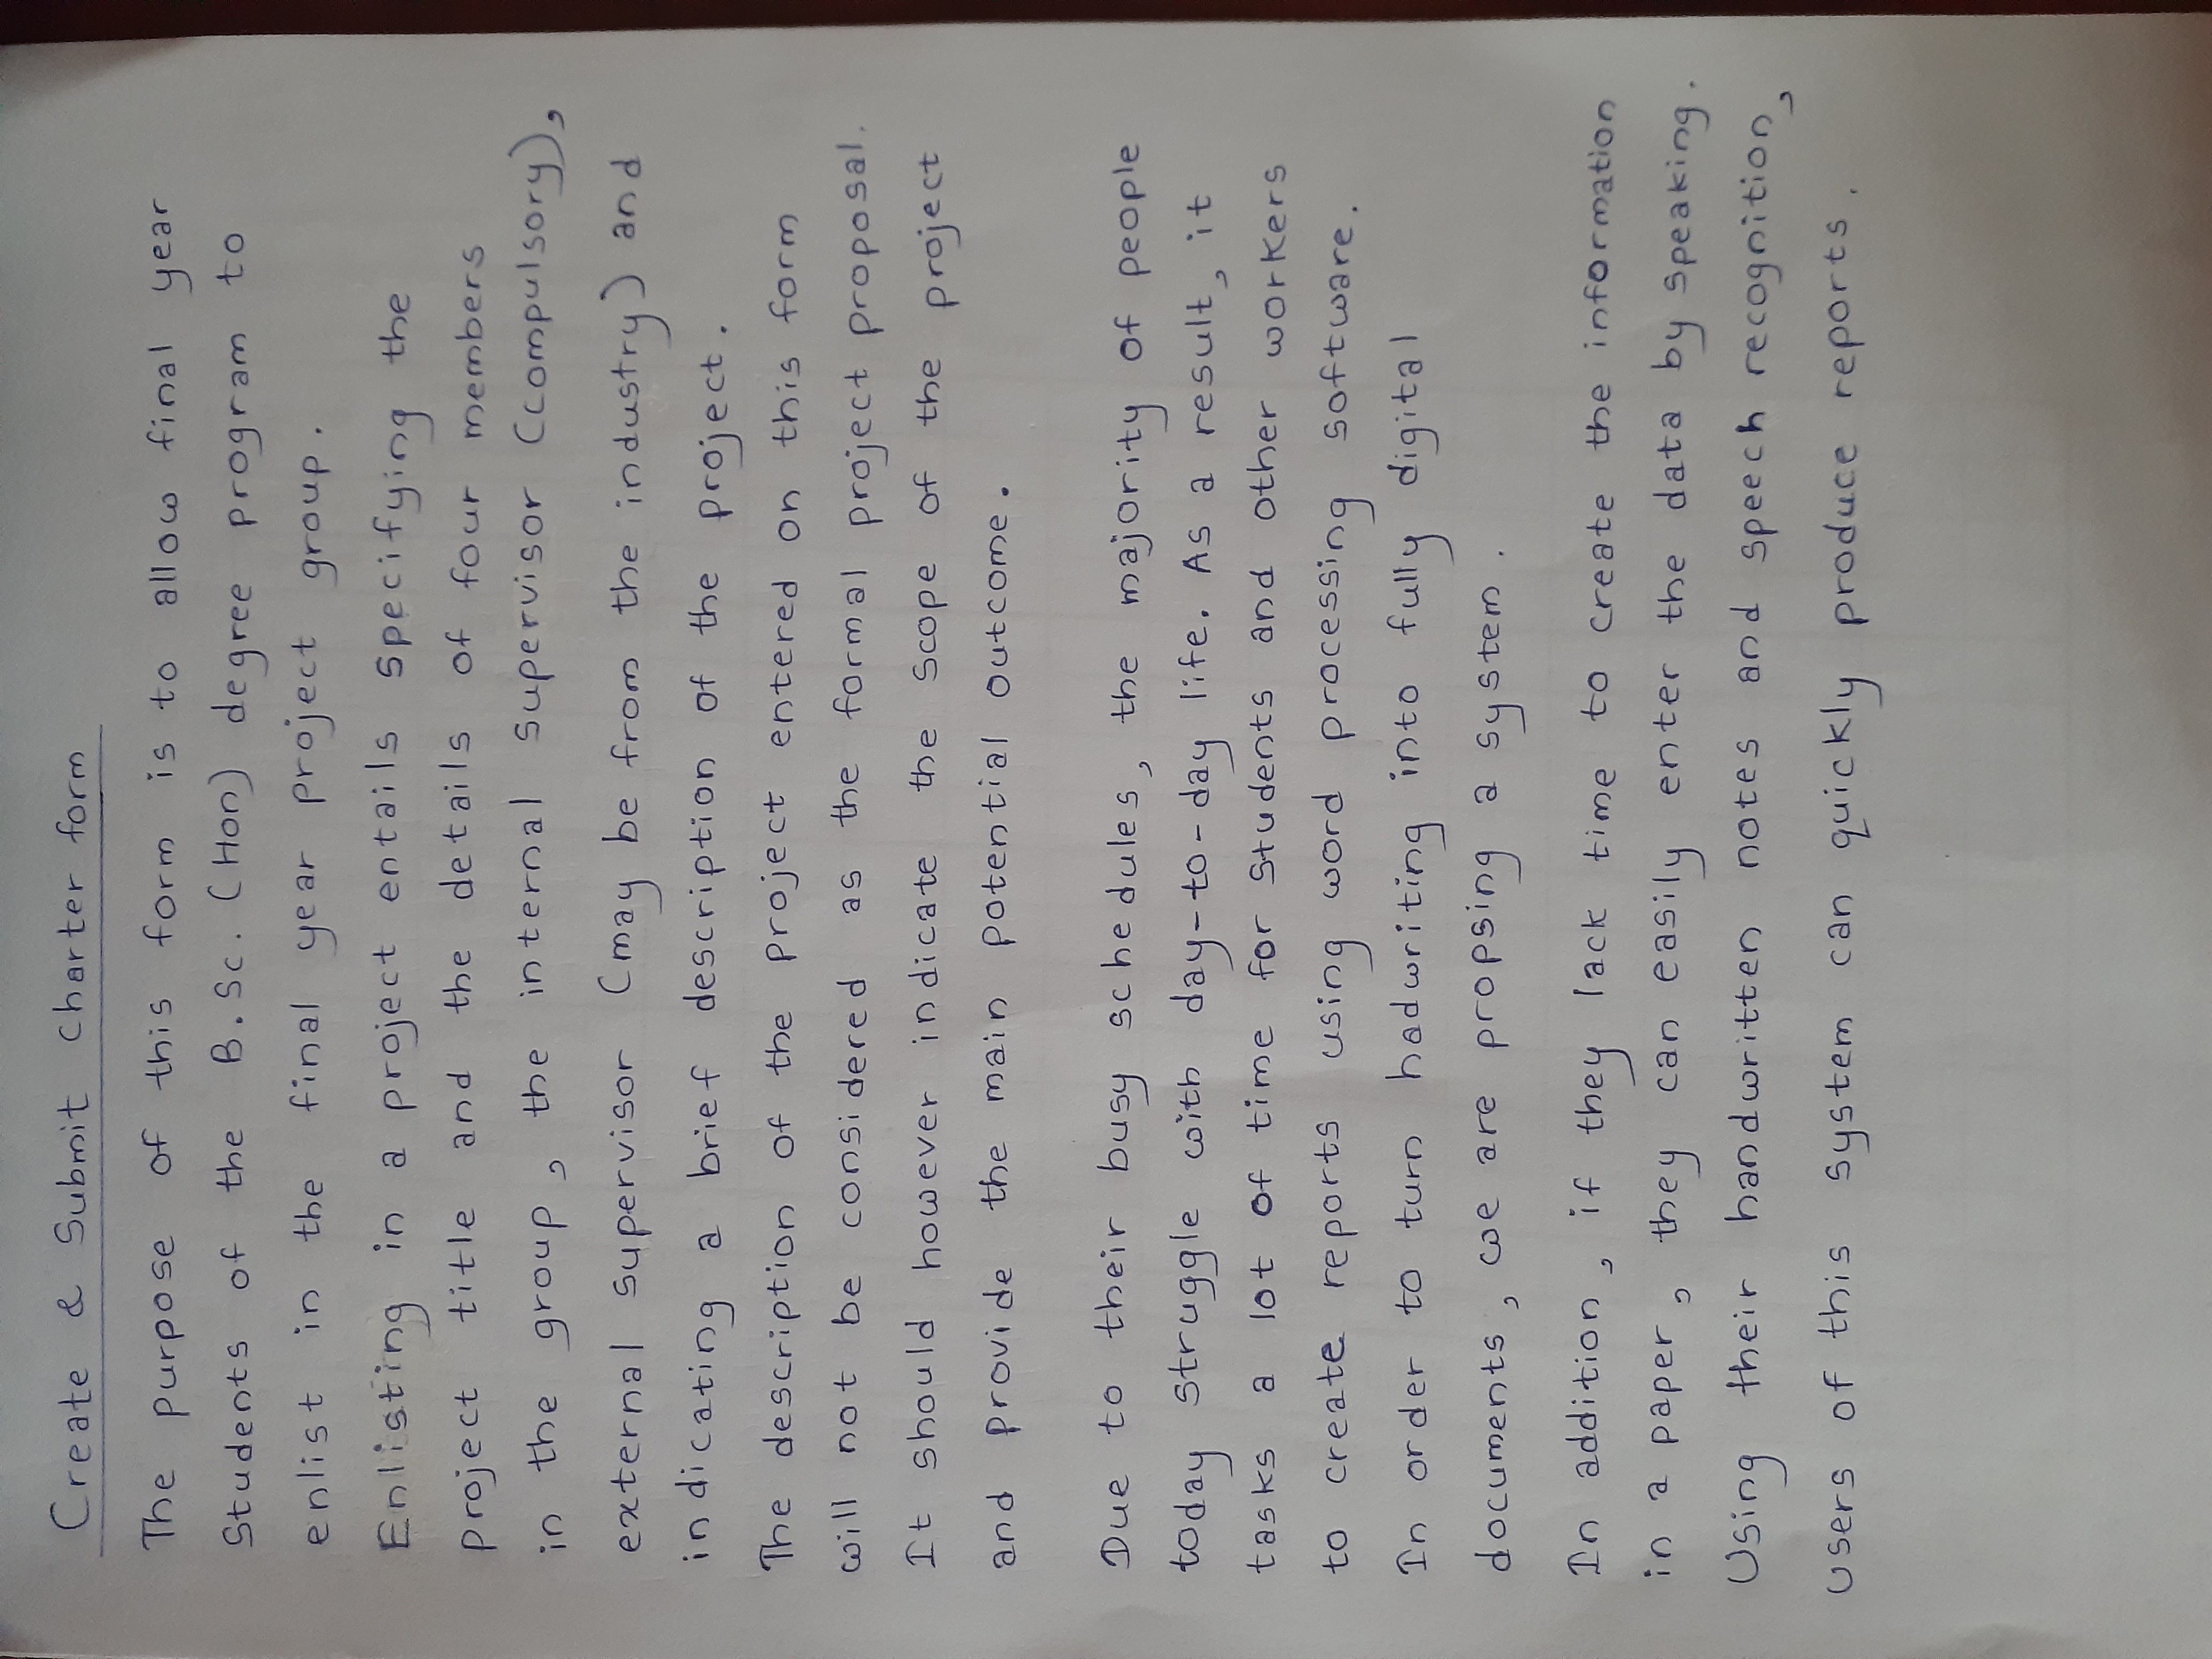 Create & Submit Charter form
The purpose of this form is to allow final year
Students of the B.Sc. (Hon) degree program to
enlist in the final year project group.
Enlisting in a project entails specifying the
project title and the details of four members
in the group, the internal supervisor (compulsory),
external supervisor (may be from the industry) and
indicating a brief description of the project.
The description of the project entered on this form
will not be considered as the formal project proposal.
It should however indicate the scope of the project
and provide the main potential outcome.
Due to their busy schedules, the majority of people
today struggle with day-to-day life. As a result, it
tasks a lot of time for students and other workers
to create reports using word processing software.
In order to turn hadwriting into fully digital
documents, we are propsing a system.
In addition, if they lack time to create the information
in a paper, they can easily enter the data by speaking.
Using their handwritten notes and speech recognition,
users of this system can quickly produce reports.